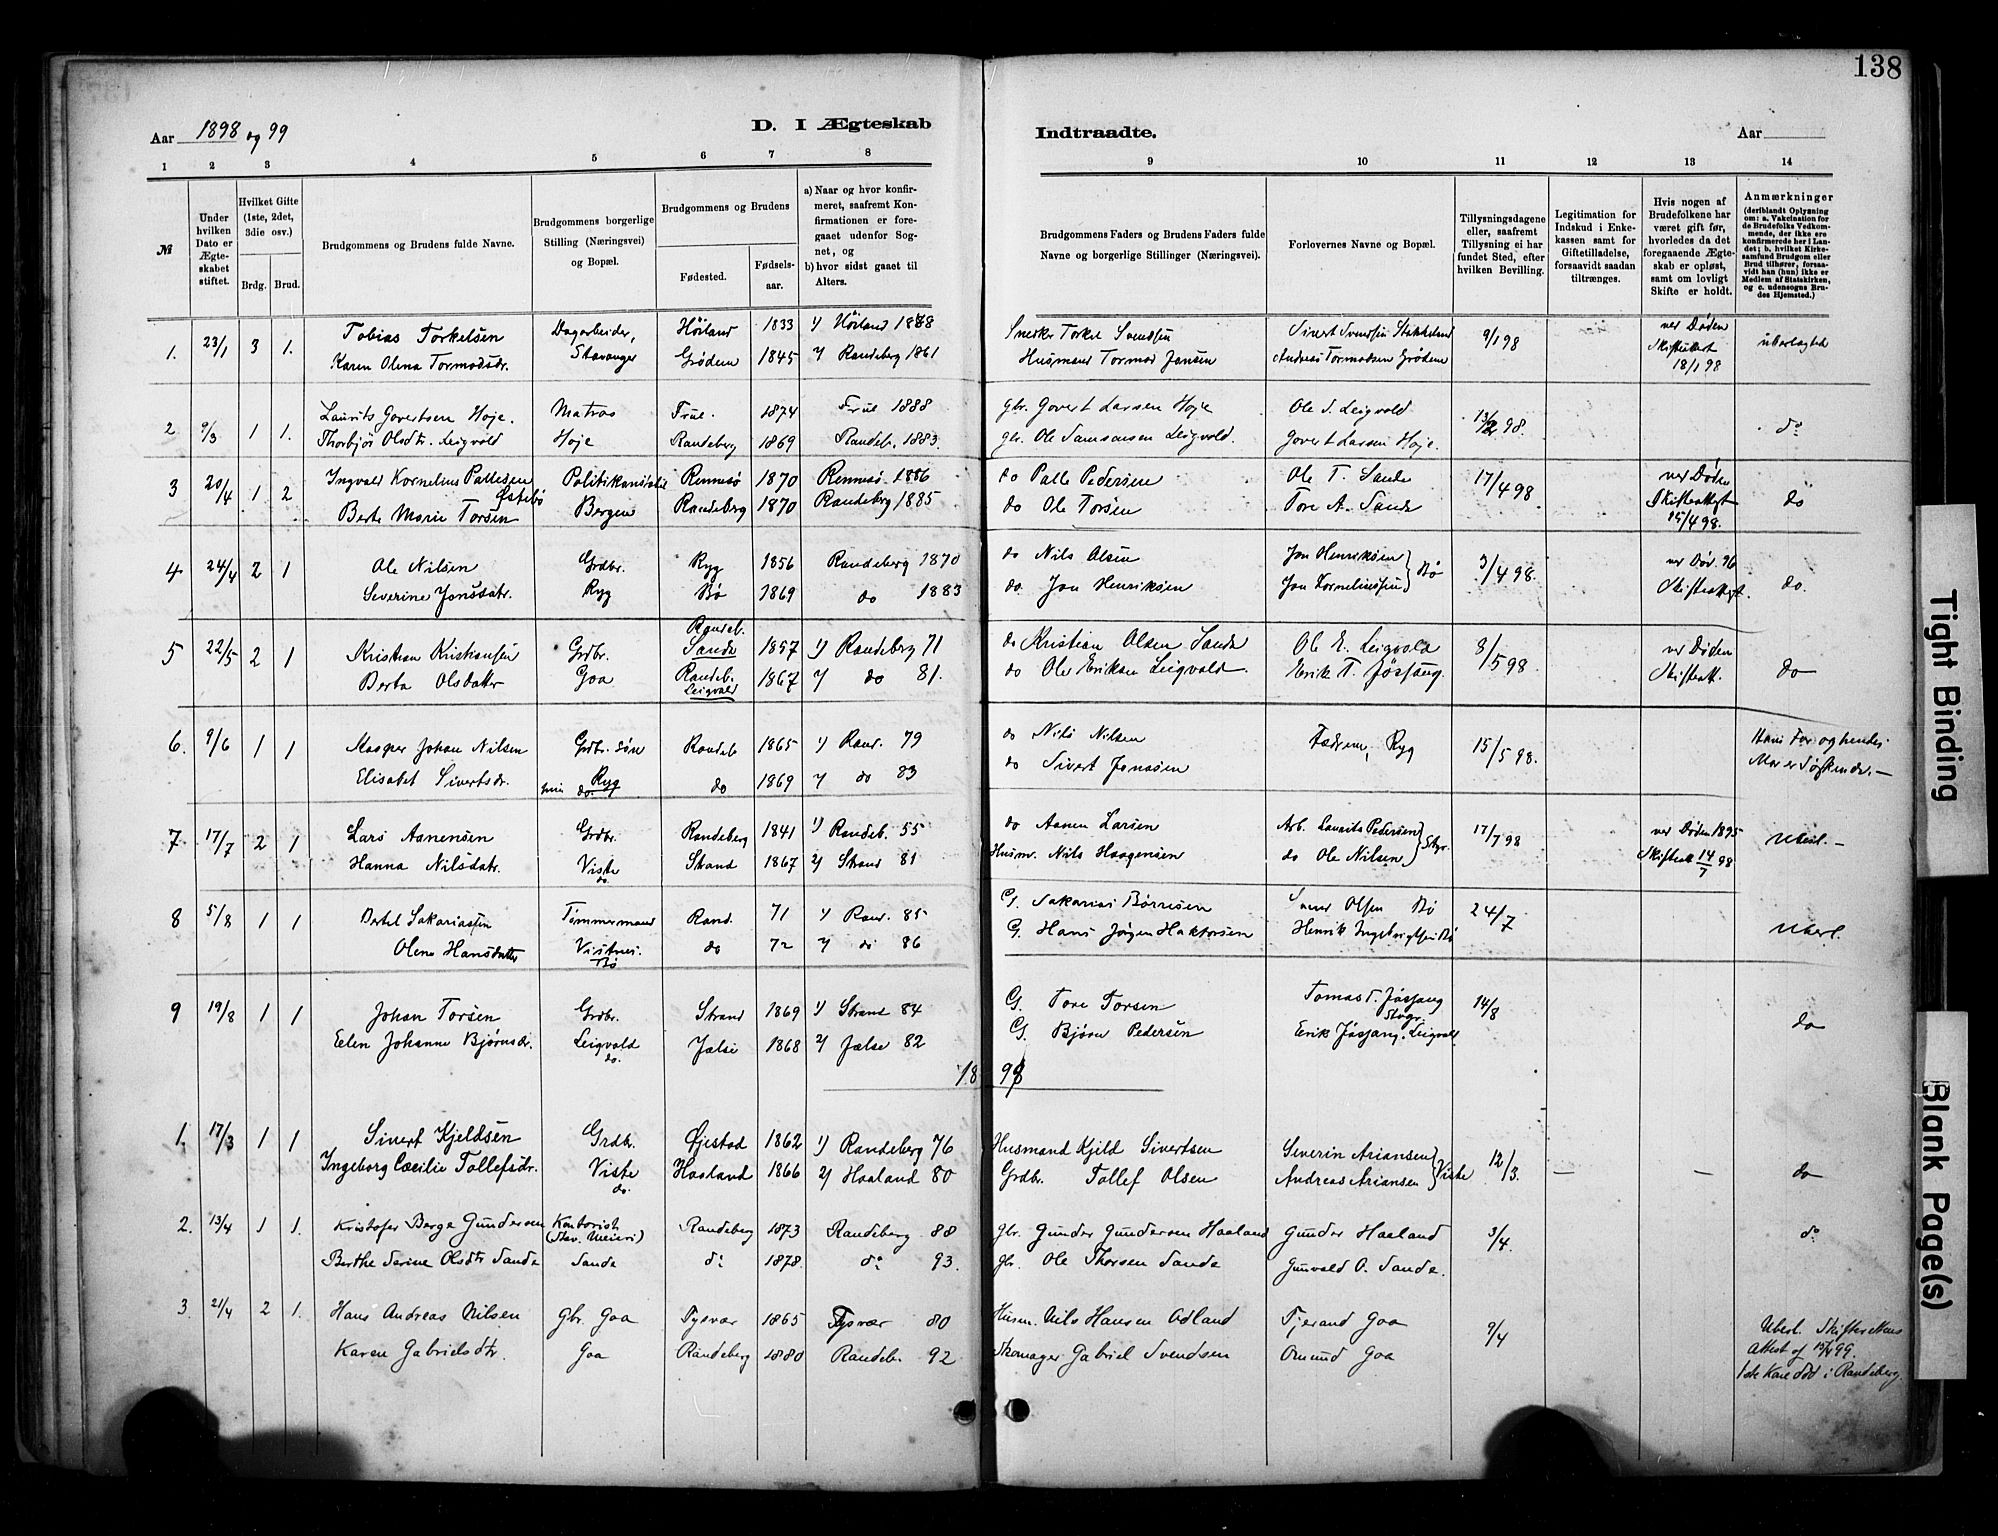 138
Aar 1898 og 99
D. I Ægteskab
Indtraadte.
Aar
1 2 3 4 5 6 7 8 9 10 11 12 13 14
№
Under hvilken Dato er Ægteskabet stiftet.
Hvilket Gifte (1ste, 2det, 3die osv.)
Brdg. Brud.
Brudgommens og Brudens fulde Navne.
Brudgommens borgerlige Stilling (Næringsvei) og Bopæl.
Brudgommens og Brudens
Fødested.
Fødsels-aar.
a) Naar og hvor konfirmeret, saafremt Konfirmationen er foregaaet udenfor Sognet, og
b) hvor sidst gaaet til Alters.
Brudgommens Faders og Brudens Faders fulde Navne og borgerlige Stillinger (Næringsvei).
Forlovernes Navne og Bopæl.
Tillysningsdagene eller, saafremt Tillysning ei har fundet Sted, efter hvilken Bevilling.
Legitimation for Indskud i Enkekassen samt for Giftetilladelse, forsaavidt saadan tiltrænges.
Hvis nogen af Brudefolkene har været gift før, hvorledes da det foregaaende Ægteskab er opløst, samt om lovligt Skifte er holdt.
Anmærkninger
(deriblandt Oplysning om: a. Vakcination for de Brudefolks Vedkommende, der ikke ere konfirmerede her i Landet; b. hvilket Kirkesamfund Brudgom eller Brud tilhører, forsaavidt han (hun) ikke er Medlem af Statskirken, og c. udensogns Brudes Hjemsted.)
1. 23/1 3 1. Tobias Torkelsen Dagarbeider, Høiland 1833 1) Høiland 1848 Snedker Torkel Svendsen Sivert Svendsen Stokkeland 9/1 98 ved Døden
Karen Olena Tormodsdr. Stavanger Grødem 1845 2) Randeberg 1861 Husmand Tormod Jansen Andreas Tormodsen Grødem Skifteattest 18/1 98
2. 9/3 1 1. Laurits Govertsen Høje. Matros Frue. 1874 Frue 1888 gbr. Govert Larsen Høje Ole S. Leigvold 13/2 98. do
Thorbjør Olsdtr. Leigvold Høje Randeberg 1869 Randeb. 1883. gbr. Ole Samsonsen Leigvold. Govert Larsen Høje.
3 20/4 1 2 Ingvald Kornelius Pallesen Østebø Rennesø 1870 Rennesø 1886 do Palle Pedersen Ole T. Sande 17/4 98 ved Døden do
Berte Marie Torsen Bergen Randeberg 1870 Randeberg 1885 do Ole Torsen Tore A. Sande Skifteattest 15/4 98.
4 24/4 2 1 Ole Nilsen Grdbr. Ryg 1856 Randeberg 1870 do Nils Olsen Jon Henriksen } Bø 3/4 98. ved Død. 96 do.
Severine Jonsdatr. Ryg Bø 1869 do 1883 do. Jon Henriksen Jon Kornelinssen Skifteattest.
5 22/5 2 1 Kristian Kristiansen Grdbr. Randeb. Sande 1857 1) Randeberg 71 do Kristian Olsen Sande Ole E. Leigvold 8/5 98 ved Døden do
Berta Olsdatter Goa Randeb. Leigvold 1867 2) do 81. do Ole Eriksen Leigvold. Erik T. Jøssang. Skifteatt.
6. 9/6 1 1 Kasper Johan Nilsen Grdbr. søn Randeb 1865 1) Rand. 79 do Nils Nilsen Fædrene, Ryg 15/5 98. Hans Far og hendes
Elisabet Sivertsdr. Ryg do. do 1869 2) do 83 do Sivert Jonsøen Mor er Søskende. —
7 17/7 2 1 Lars Aanensen Grdbr. Randeberg 1841 1) Randeb. 55 do Aanen Larsen Arb. Laurits Pedersen } Stvgr. 17/7 98 ved Døden 1895 Uberl. —
Hanna Nilsdatr. Viste do. Strand 1867 2) Strand 81 Husm. Nils Haagensen do Ole Nilsen Skifteatt 14/7 98
8 5/8 1 1 Bertel Sakariassen Tømmermand Rand. 71 1) Rand. 85 G. Sakarias Børresen Olsen Bø 24/7 Uberl.
Olene Hansdatter Vistnes. Bø do 72 2) do 86 G. Hans Jørgen Haktorsen Henrik Ingebrigtsen Bø
9 19/8 1 1 Johan Torsen Grdbr. Strand 1869 1) Strand 84 G. Tore Torsen Tomas T. Jøssang Stvgr. 14/8 do
Eelen Johanne Bjørnsdr. Leigvold do. Jelse 1868 2) Jelse 82 G. Bjørn Pedersen Erik Jøssang. Leigvold
1899
1. 17/3 1 1 Sivert Kjeldsen Grdbr. Øjestad 1862 1) Randeberg 76 Husmand Kjeld Sivertsen Severin Ariansen } Viste 12/3. — — do
Ingeborg Cæcilie Tollefsdr. Viste do. Haaland 1866 2) Haaland 80 Grdbr. Tollef Olsen Andreas Ariansen
2. 13/4 1 1. Kristofer Berge Gundersen Kontorist (Stav. Meieri) Randeberg 1873 Randeberg 88 gbr. Gunder Gundersen Haaland Gunder Haaland 3/4. do
Berthe Serine Olsdtr Sande Sande do 1878. do 93. gbr. Ole Thorsen Sande Gunvald O. Sande.
3. 21/4 2 1. Hans Andreas Nilsen Gbr. Goa Tysvær 1865 Tysvær 80 Husm. Nils Hansen Odland Tjerand Goa 9/4 Uberl. Skifterettens
Karen Gabrielsdtr. Goa Randeberg 1880 Randeb. 92 Skomager Gabriel Svendsen Omund Goa Attest af 15/4 99.
1ste Kone død i Randeberg.
Tight Binding
Blank Page(s)